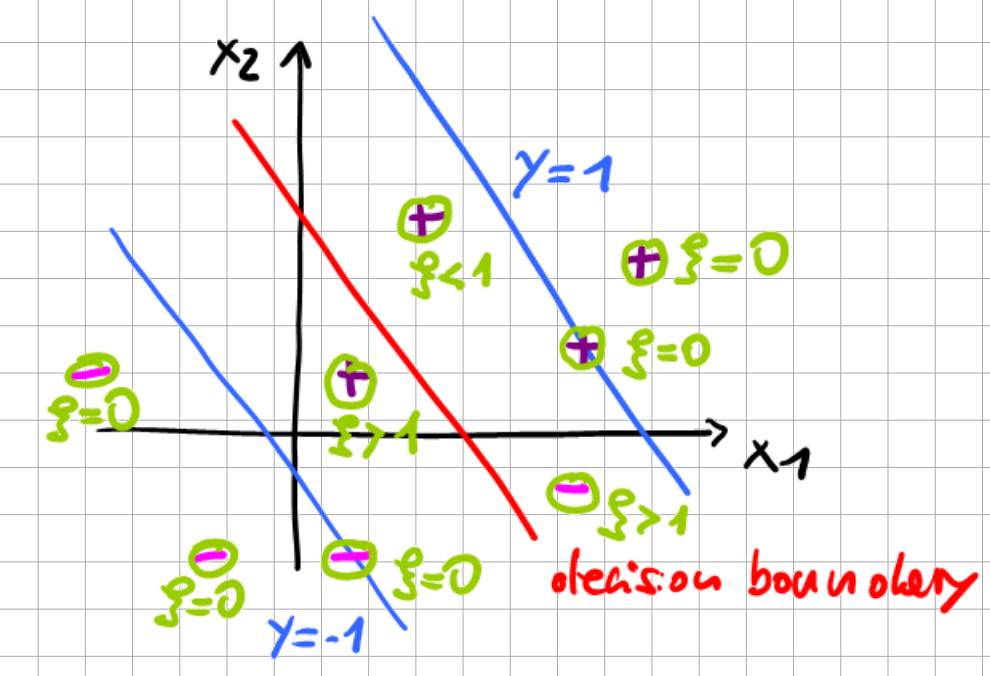 x2
y=1
+
ξ<1
+ ξ=0
+ ξ=0
−
ξ=0
+
ξ>1
x1
−
ξ>1
−
ξ=0
− ξ=0
decision boundary
y=-1